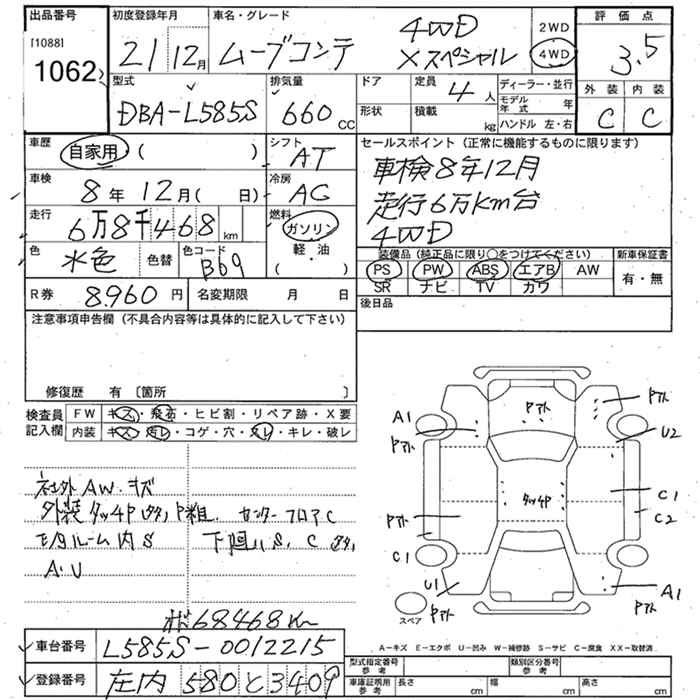 出品番号 初度登録年月 車名・グレード 評価点
[1088] 1062 21 12月 ムーブコンテ 4WD Xスペシャル 2WD 4WD 3.5
外装 内装
C C
型式 排気量 ドア 定員 4人 ディーラー・並行
DBA-L585S 660cc 形状 積載 kg モデル年式 年
ハンドル 左・右
車歴 自家用 ( ) シフト AT セールスポイント (正常に機能するものに限ります)
車検 8年 12月 ( 日) 冷房 AC 車検8年12月
走行 6万8千468km 燃料 ガソリン 軽・油 ( ) 走行6万km台
色 水色 色替 色コード B69 4WD
装備品 (純正品に限り○をつけてください) 新車保証書
PS PW ABS エアB AW 有・無
SR ナビ TV カワ
R券 8960円 名変期限 月 日 後日品
注意事項申告欄 (不具合内容等は具体的に記入して下さい)
修復歴 有 〔箇所 〕
検査員記入欄 FW キズ・飛石・ヒビ割・リペア跡・X要
内装 キズ・汚レ・コゲ・穴・スレ・キレ・破レ
社外AW.キズ
外装タッチP P粗. センターフロアC
モタルーム内S 下廻りS. C
A.U
68468km
A1 Pアト Pアト Pアト U2
タッチP C1 C2
Pアト C1 U1 Pアト A1 Pアト
スペア
A-キズ E-エクボ U-凹み W-補修跡 S-サビ C-腐食 XX-取替済
車台番号 L585S-0012215
登録番号 庄内 580 と 3409
型式指定番号 参考 類別区分番号 参考
車庫証明用 参考 長さ cm 幅 cm 高さ cm